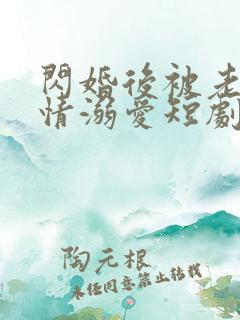 閃婚後被老
情溺愛短劇
陶元根
未经同意禁止转载